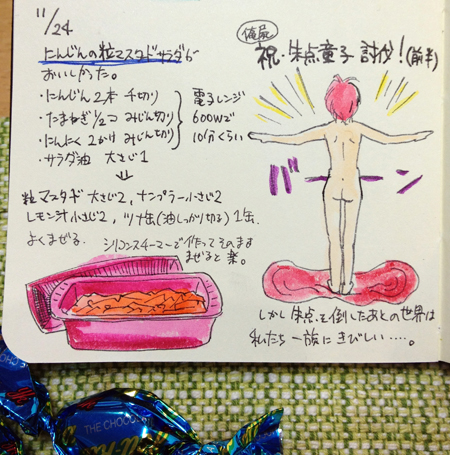 11/24
にんじんの粒マスタードサラダが
おいしかった。
・にんじん2本 千切り
・たまねぎ1/2コ みじん切り
・にんにく2かけ みじん切り
・サラダ油 大さじ1
電子レンジ
600Wで
10分くらい
粒マスタード 大さじ2, ナンプラー小さじ2
レモン汁小さじ2, ツナ缶(油しっかり切る)1缶
よくまぜる.
シリコンスチーマーで作ってそのまま
まぜると楽。
俺屍
祝・朱点童子 討伐!(前半)
バーン
しかし 朱点を倒したあとの世界は
私たち一族にきびしい……。
THE CHOCO